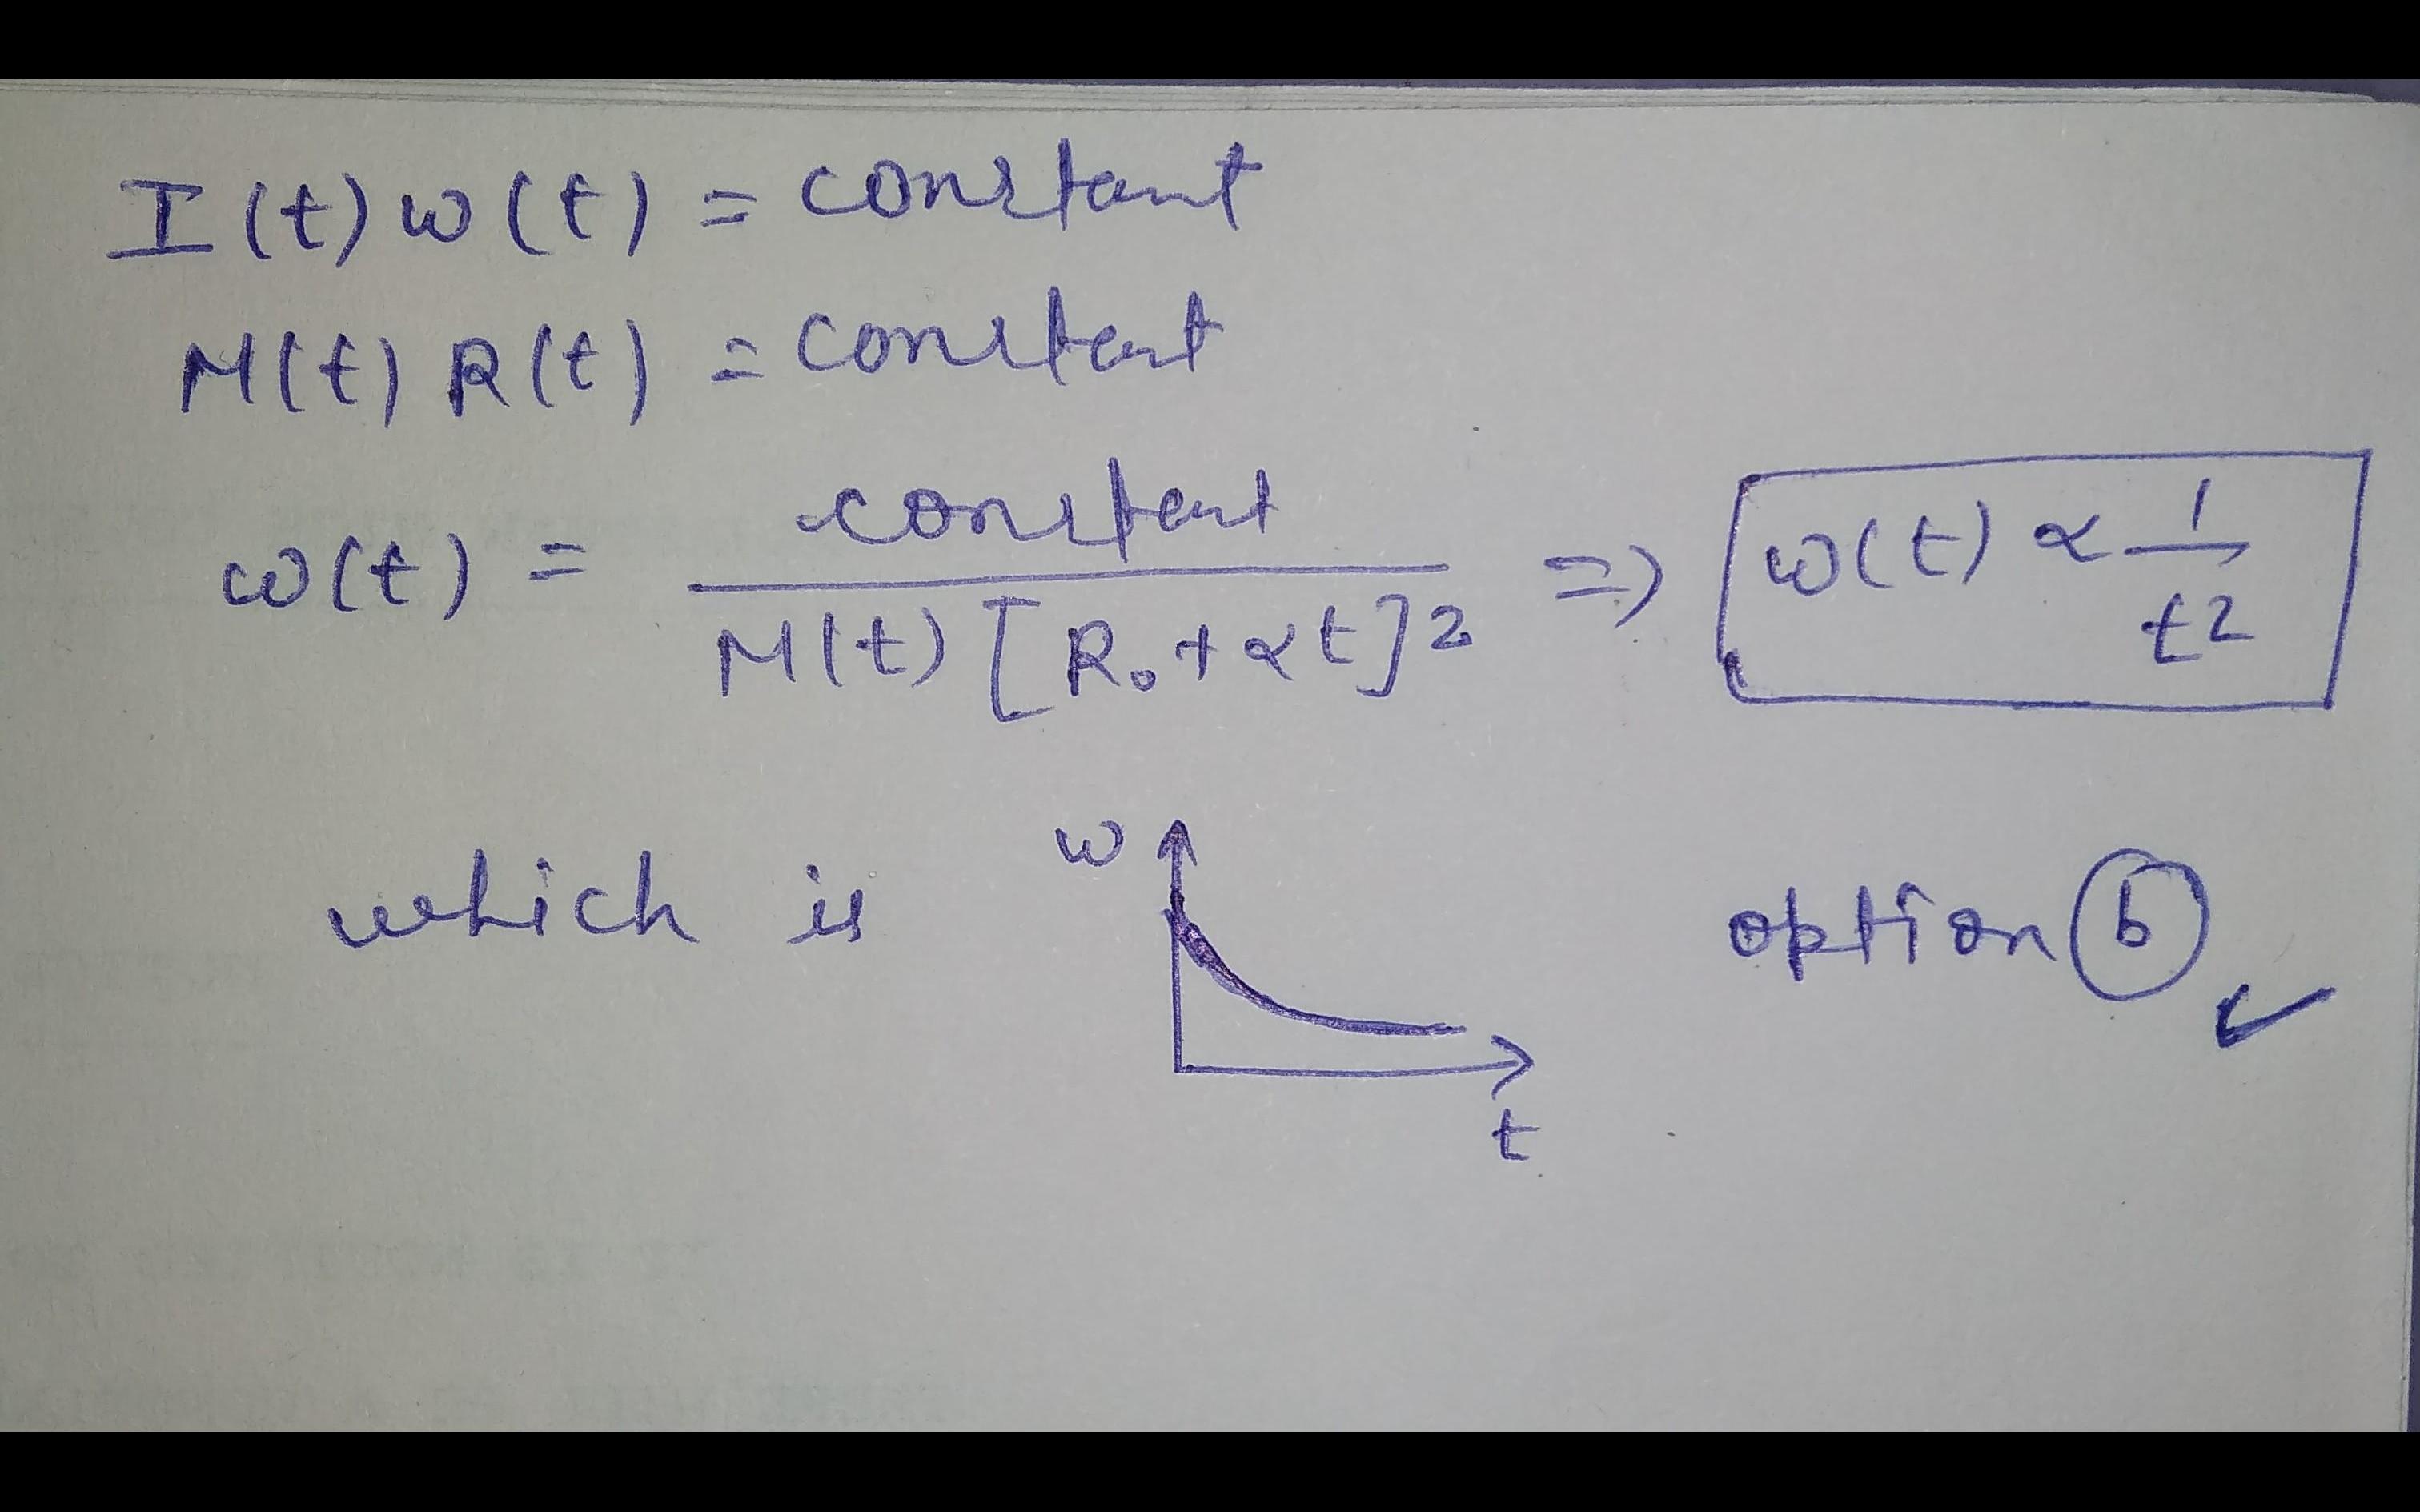 I(t) ω(t) = constant
M(t) R(t) = constant
ω(t) = constant / M(t) [R₀ + αt]² ⇒ ω(t) ∝ 1/t²
which is ω t option (b) ✓